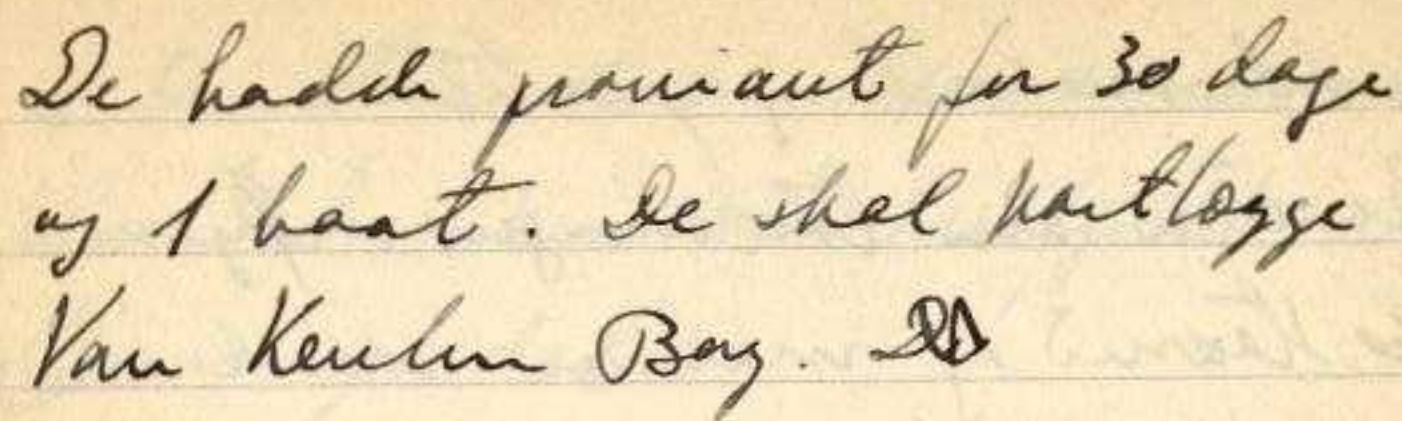 De hadde proviant for 30 dage
og 1 baat. De skal kartlægge
Van Keulen Bay.